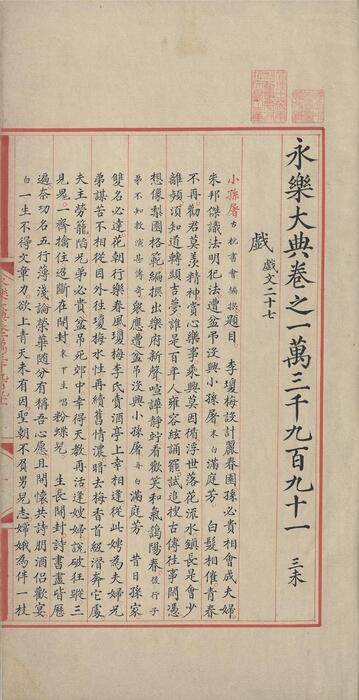 永樂大典卷之一萬三千九百九十一 三未
戲 戲文二十七
小孫屠 古杭書會編撰 題目 李瓊梅設計麗春園 孫必貴相會成夫婦
朱邦傑識法明犯法 遭盆吊沒興小孫屠 末白 滿庭芳 白髮相催青春
不再勸君莫羨精神賞心樂事乘興莫因循浮世落花流水鎮長是會少
離頻須知道轉頭吉夢誰是百年人雍容絃誦罷試追搜古傳往事閑憑
想像梨園格範編撰出樂府新聲喧譁靜竚看歡笑和氣靄陽春 後行子
弟不知敷演甚傳奇 衆應 遭盆吊沒興小孫屠 再白 滿庭芳 昔日孫家
雙名必達花朝行樂春風瓊梅李氏賣酒亭上幸相逢從此娉為夫婦兄
弟謀苦不相從因外往瓊梅水性再續舊情濃暗去梅香首級潛奔它處
夫主勞籠陷兄弟必貴盆吊死郊中幸得天教再活逢嫂婦說破狂蹤三
見鬼一齊擒住迢斷在開封 末下生唱 粉蝶兒 生長開封詩書盡皆歷
遍奈功名五行薄淺論榮華隨分有稱吾心愿且開懷共詩朋酒侶歡宴
白 一生不得文章力欲上青天未有因聖朝不負男兒志嫦娥為伴一枝